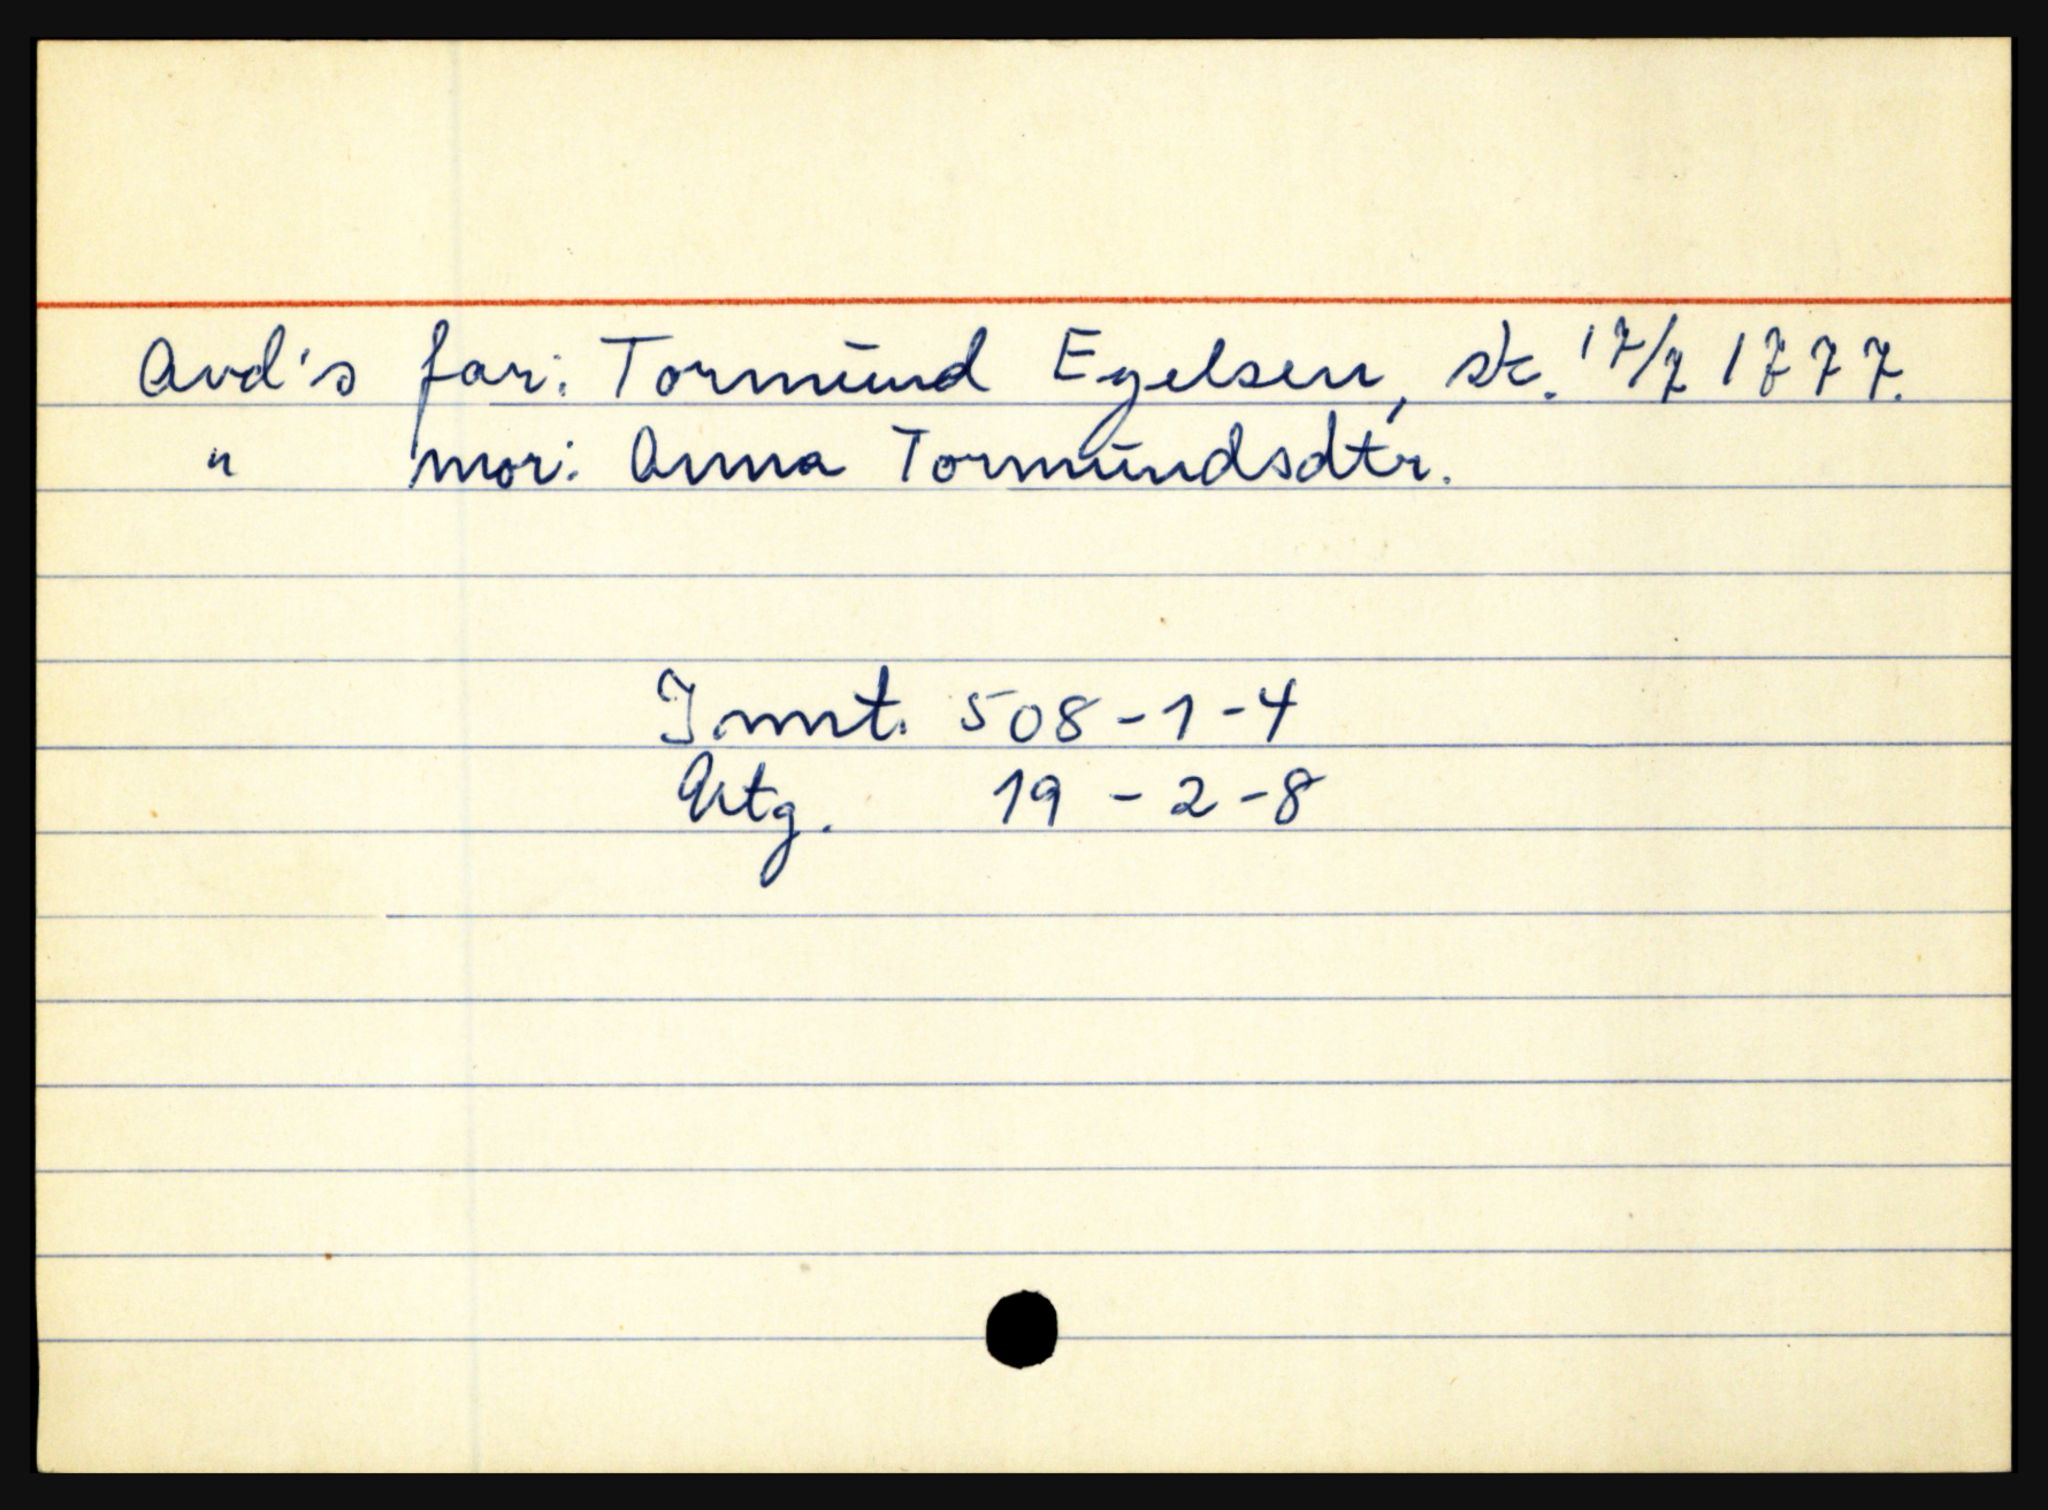 Avd's far: Tormund Egelsen, sk. 17/7 1777.
" mor: Anna Tormundsdtr.
Innt. 508-1-4
Utg. 19-2-8